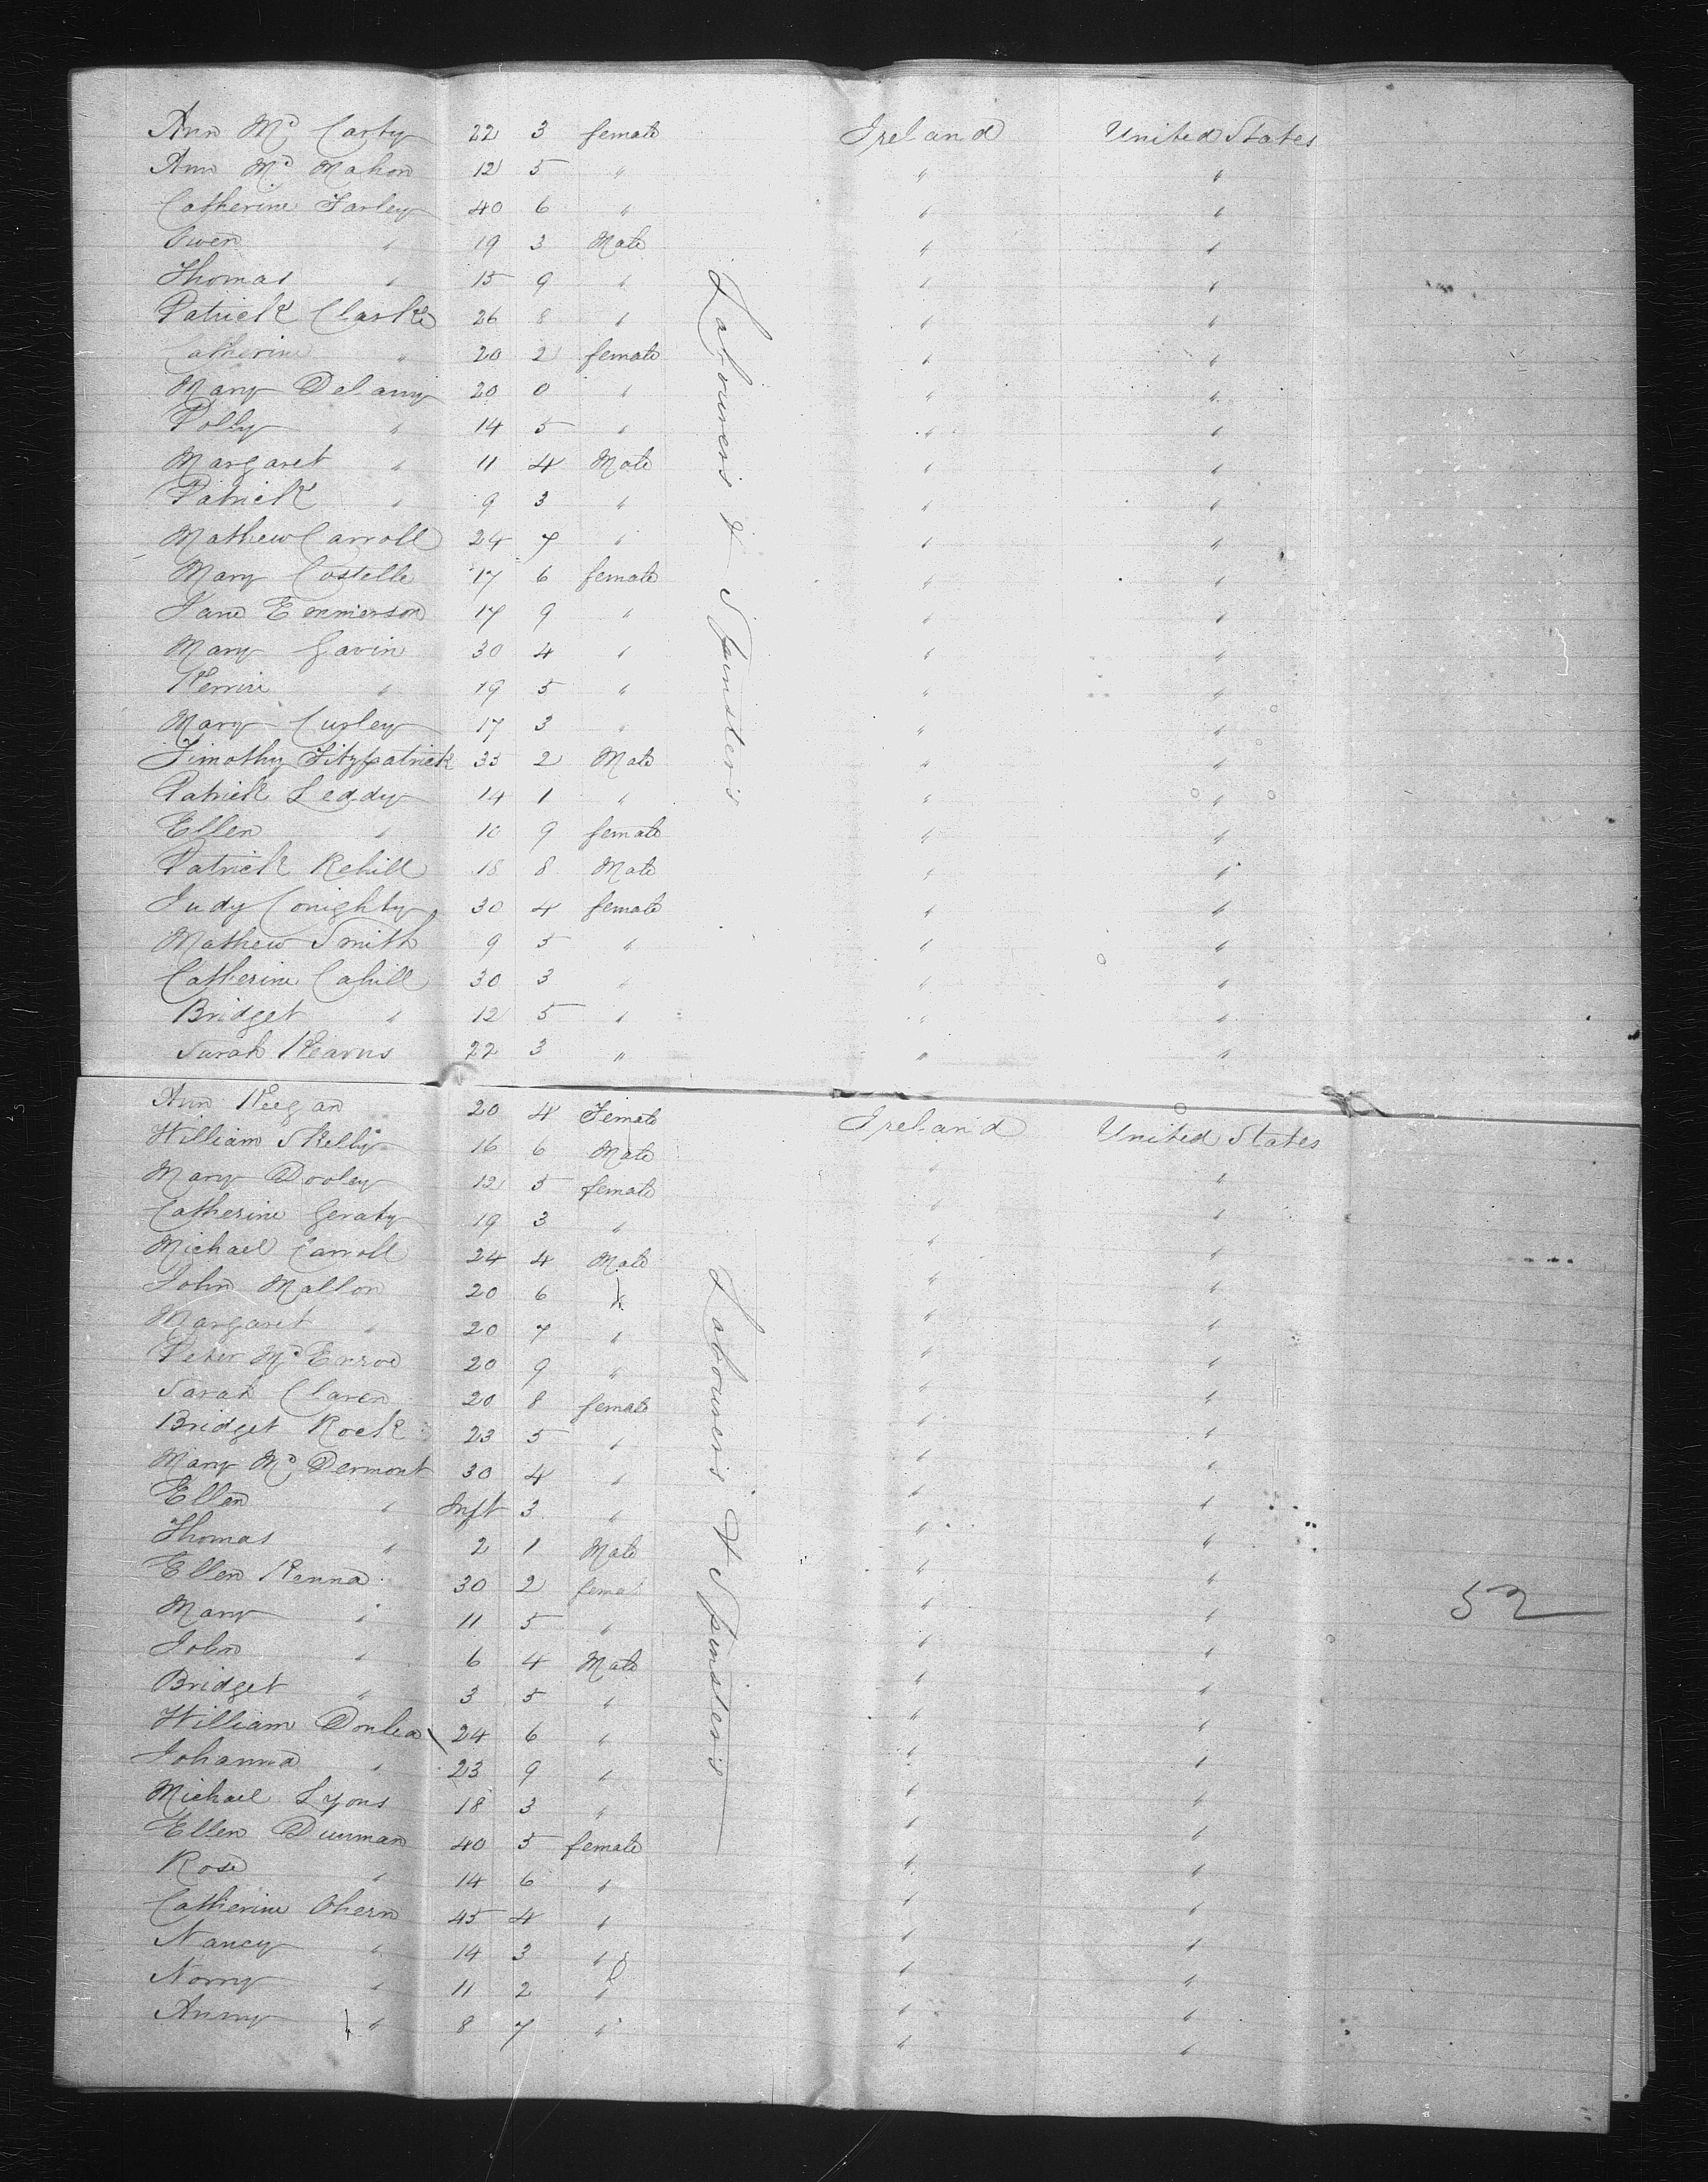 Ann Mc Carty 22 3 female Ireland United States
Ann Mc Mahon 12 5 " " "
Catherine Farley 40 6 " " "
Owen " 19 3 Male " "
Thomas " 15 9 " " "
Patrick Clarke 26 8 " " "
Catherine " 20 2 female " "
Mary Delany 20 0 " " "
Polly " 14 5 " " "
Margaret " 11 4 Male " "
Patrick " 9 3 " " "
Mathew Carroll 24 7 " " "
Mary Costelle 17 6 female " "
Jane Emmerson 17 9 " " "
Mary Gavin 30 4 " " "
" 19 5 " " "
Mary Curley 17 3 " " "
Timothy Fitzpatrick 33 2 Male " "
Patrick Leddy 14 1 " " "
Ellen " 10 9 female " "
Patrick Rehill 18 8 Male " "
Judy Conighty 30 4 female " "
Mathew Smith 9 5 " " "
Catherine Cahill 30 3 " " "
Bridget " 12 5 " " "
Sarah Kearns 22 3 " " "
Labourer's & Spinster's
Ann Keegan 20 4 Female Ireland United States
William Skelly 16 6 Male " "
Mary Dooley 12 5 female " "
Catherine Geraty 19 3 " " "
Michael Carroll 24 4 Male " "
John Mallon 20 6 " " "
Margaret " 20 7 " " "
Peter Mc Enroe 20 9 " " "
Sarah Claren 20 8 female " "
Bridget Rock 23 5 " " "
Mary Mc Dermont 30 4 " " "
Ellen " Inft 3 " " "
Thomas " 2 1 Male " "
Ellen Kenna 30 2 female " "
Mary " 11 5 " " "
John " 6 4 Male " "
Bridget " 3 5 " " "
William Donlea 24 6 " " "
Johanna " 23 9 " " "
Michael Lyons 18 3 " " "
Ellen Dunman 40 5 female " "
Rose " 14 6 " " "
Catherine Ohern 45 4 " " "
Nancy " 14 3 " " "
Norry " 11 2 " " "
Anny " 8 7 " " "
Labourer's & Spinster's
52